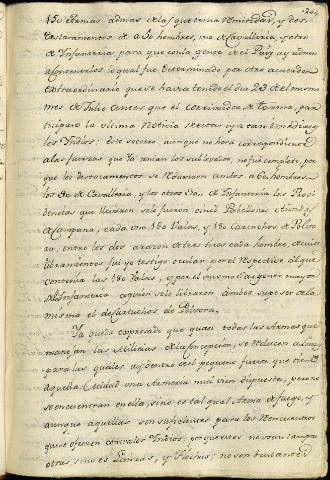 204
150 Armas admas de las que tenia remitidas, y dos
Destacamentos de a 50 hombres, uno de Cavalleria, y otro
de Infanteria para que con la gente de el Pais ayudasen
a contenerlos, lo qual fue determinado por otro acuerdo
extraordinario que se havia tenido el dia 23 de el mismo
mes de Julio antes que el corregidor de Tarma, par-
ticipase la ultima noticia
los Indios: Este socorro aunque no hera correspondiente
a las fuerzas que ya tenian los sublevados, no fue completo, por
que los destacamentos se reduxeron ambos a 60 hombres
los de Cavalleria, y los otros de Infanteria las Provi-
dencias que llevaron solo fueron cinco Pabellones
de Campaña, cada uno 180 Valas, y 180 cartuchos de Polvo-
ra, entre los dos a razon de tres tiros cada hombre, de cuios
libramientos fui yo testigo ocular por el respectivo al que
contenia las 180 Valas, y por el mismo Sargento mayor
de Infanteria a quien se le libraron ambos supe ser de la
misma el de Cartuchos de Polvora.
Ya queda expresado que quasi todas las Armas que
manejan las Milicias de la Concepcion, se reducen a Lanzas
para las quales ay dentro de el pequeño fuerte que tiene
aquella Ciudad una Armeria mui vien dispuesta, pero no
se encuentran en ella, sino es tal qual Arma de fuego, y
aunque aquellas son suficientes para los Rencuentros
que se ofrecen con tales Indios; porque estos no usan tampoco
otras, sino es Lanzas, y Flechas; no son bastantes